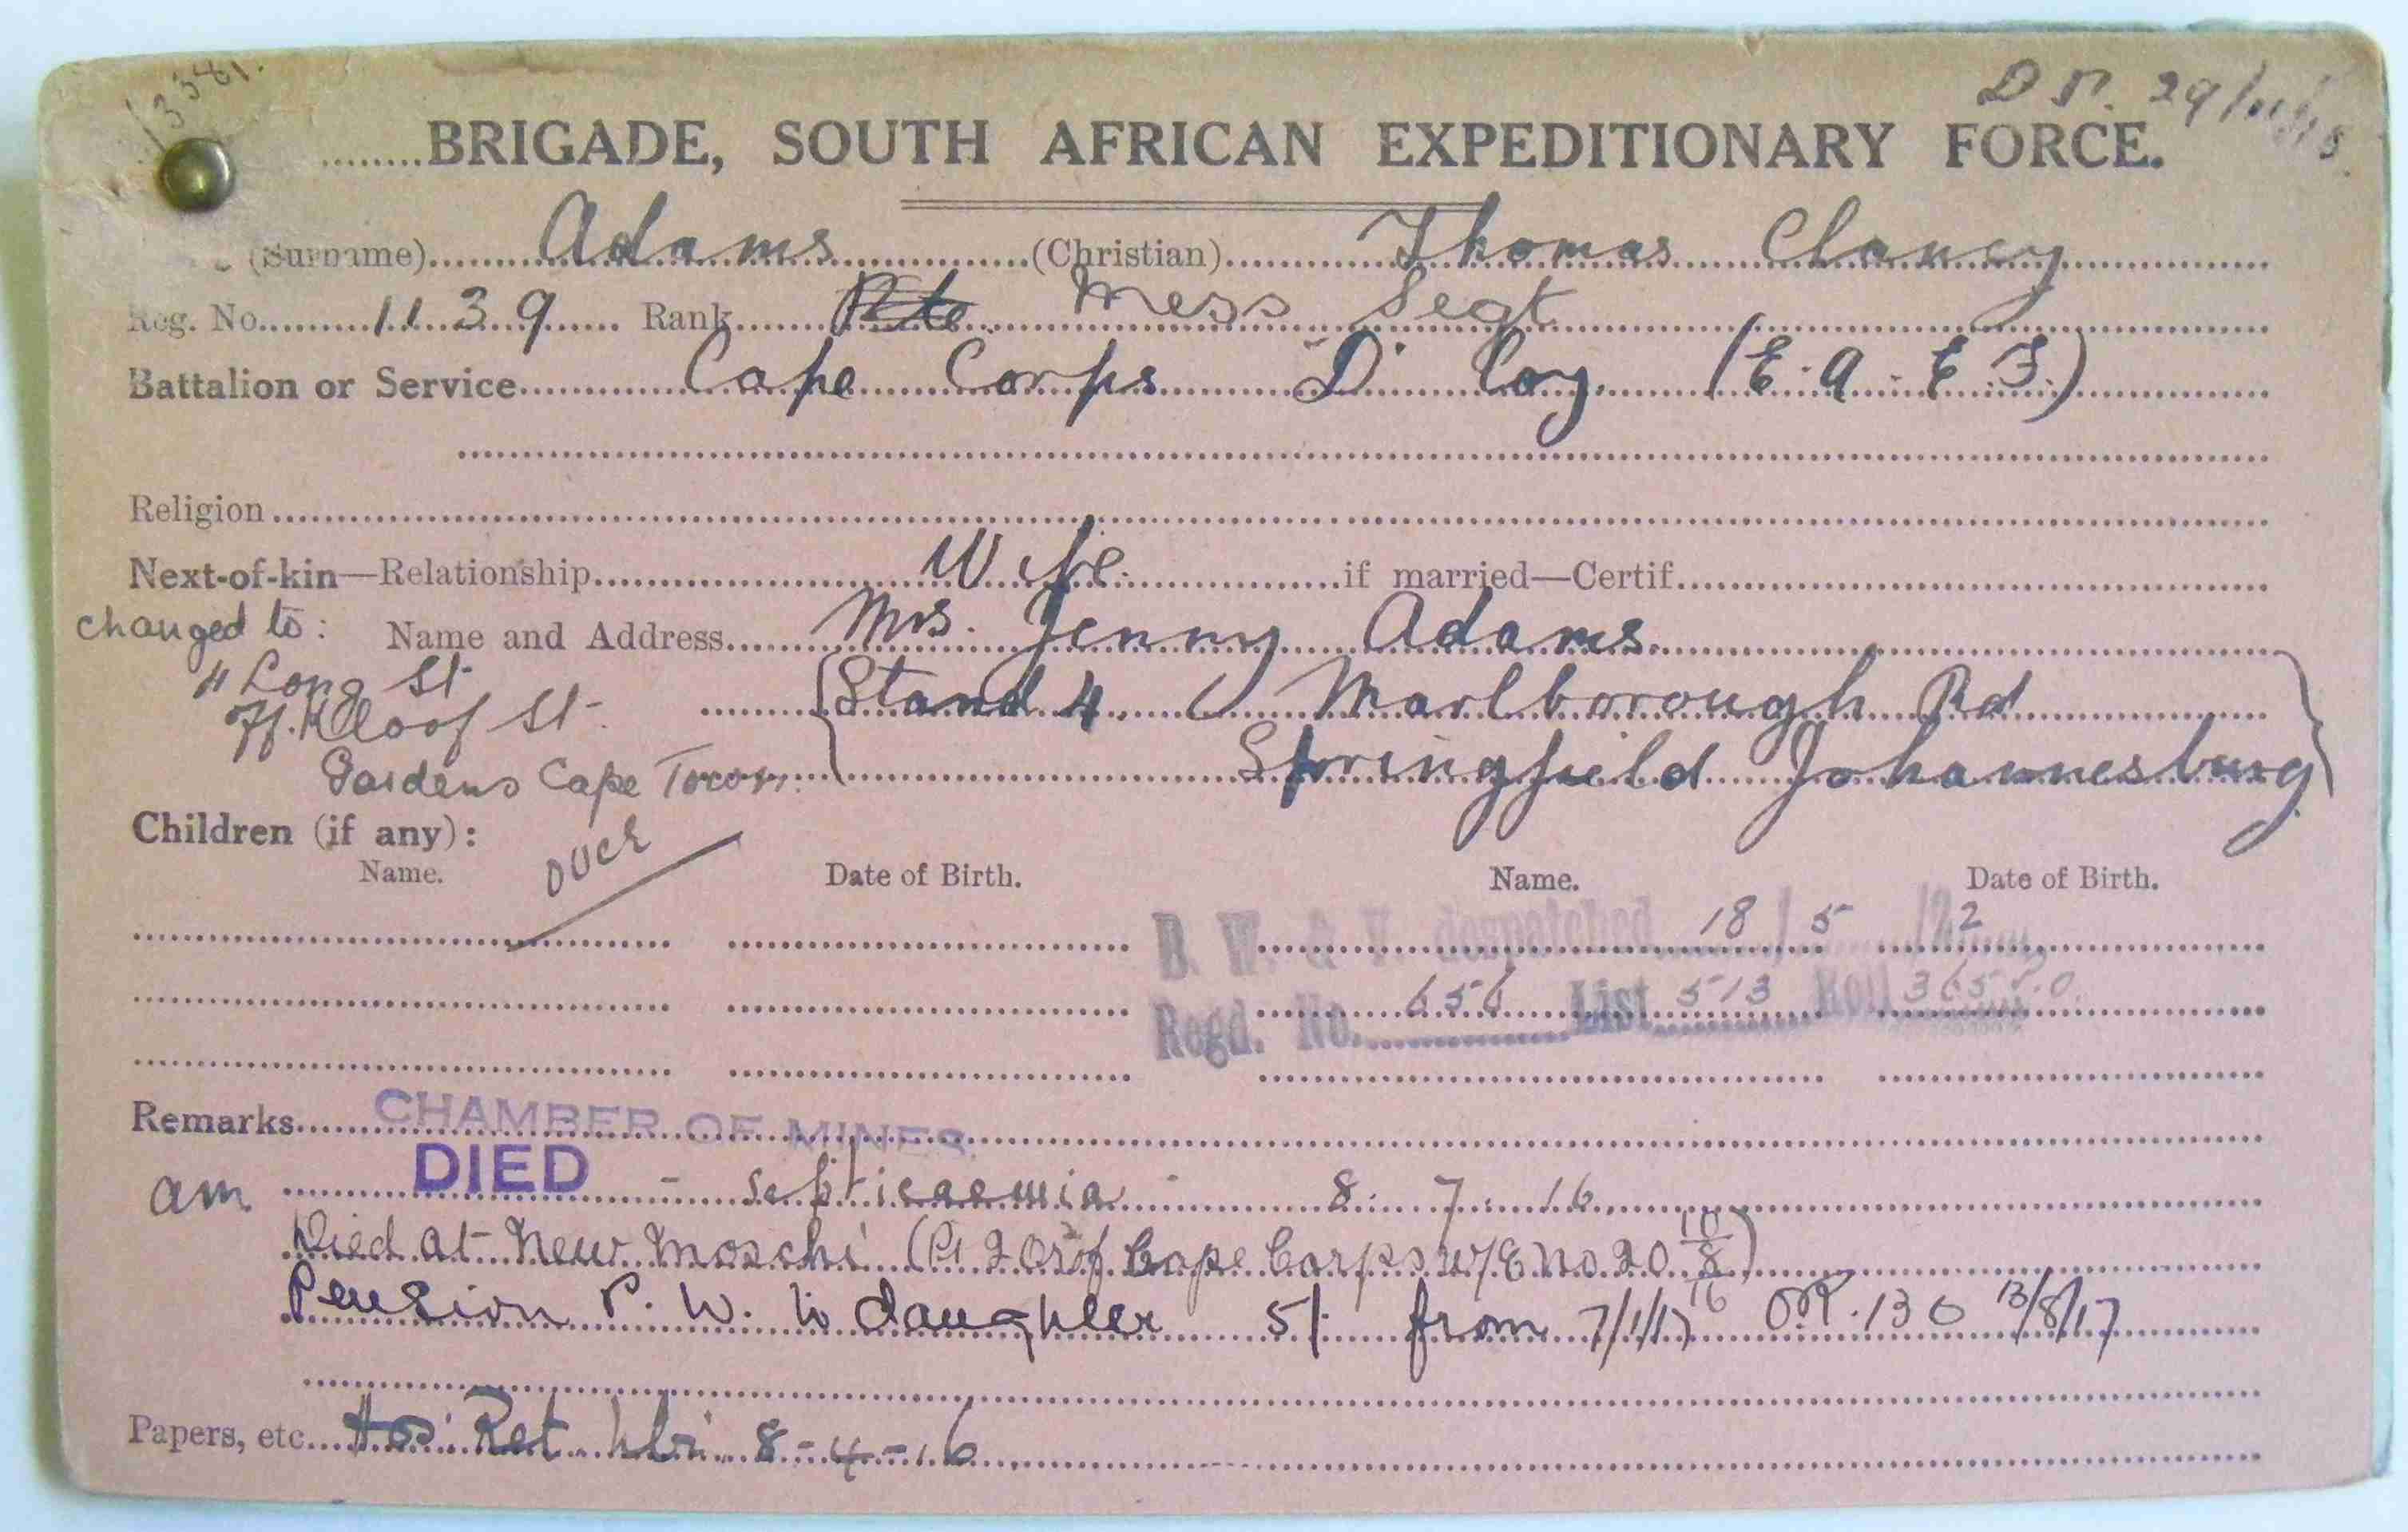 D.P. 29/11/15.
........BRIGADE, SOUTH AFRICAN EXPEDITIONARY FORCE.
(Surname) Adams (Christian) Thomas Clancy
Reg. No. 1139 Rank Pte Mess Segt
Battalion or Service Cape Corps "D" Coy. (E.A.E.F.)
Religion
Next-of-kin—Relationship Wife. if married—Certif.
changed to: Name and Address Mrs. Jenny Adams.
4 Long St {Stand 4. Marlborough Rd
off. Kloof St. Springfield Johannesburg}
Gardens Cape Town.
Children (if any):
over
Name. Date of Birth. Name. Date of Birth.
B. W. & V. despatched 18/5/22
Regd. No. 656 List 513 Roll 365 P.O.
Remarks CHAMBER OF MINES.
am DIED - septicaemia - 8.7.16.
Died at New Moschi (Pt 2 Or of Cape Corps w/E No. 20 10/8/16)
Pension P. W. to daughter 5/- from 7/1/17 OP. 130 13/8/17
Papers, etc. Hos: Ret 8-4-16